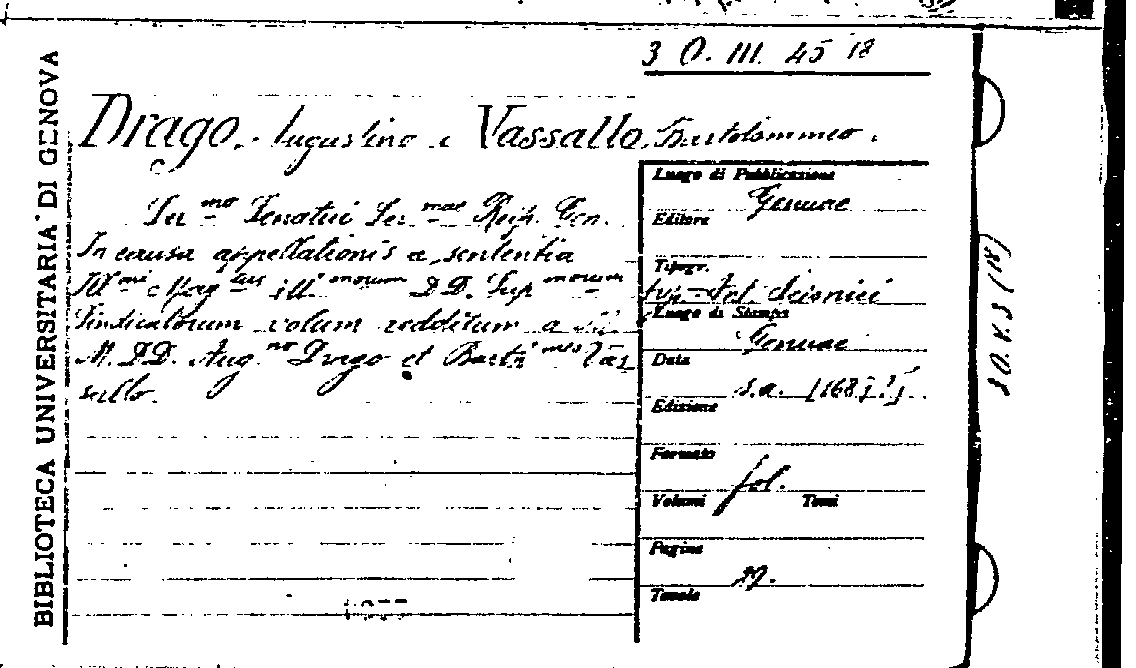 3 O. III. 45 18
BIBLIOTECA UNIVERSITARIA DI GENOVA
Drago, Augustino e Vassallo, Bartolommeo.
Ser.mo Senatui Ser.mae Reip. Gen.
In causa appellationis a sententia
Ill.mi Mag.tus ill.morum D.D. Sup.morum
Sindicatorum votum redditum a
M. D.D. Aug.no Drago et Barth.meo Vas
sallo.
Luogo di Pubblicazione
Genuae
Editore
Tipogr.
typ. Scionici
Luogo di Stampa
Genuae
Data
s.a. [168 ?]
Edizione
Formato
fol.
Volumi Tomi
Pagine
Tavole